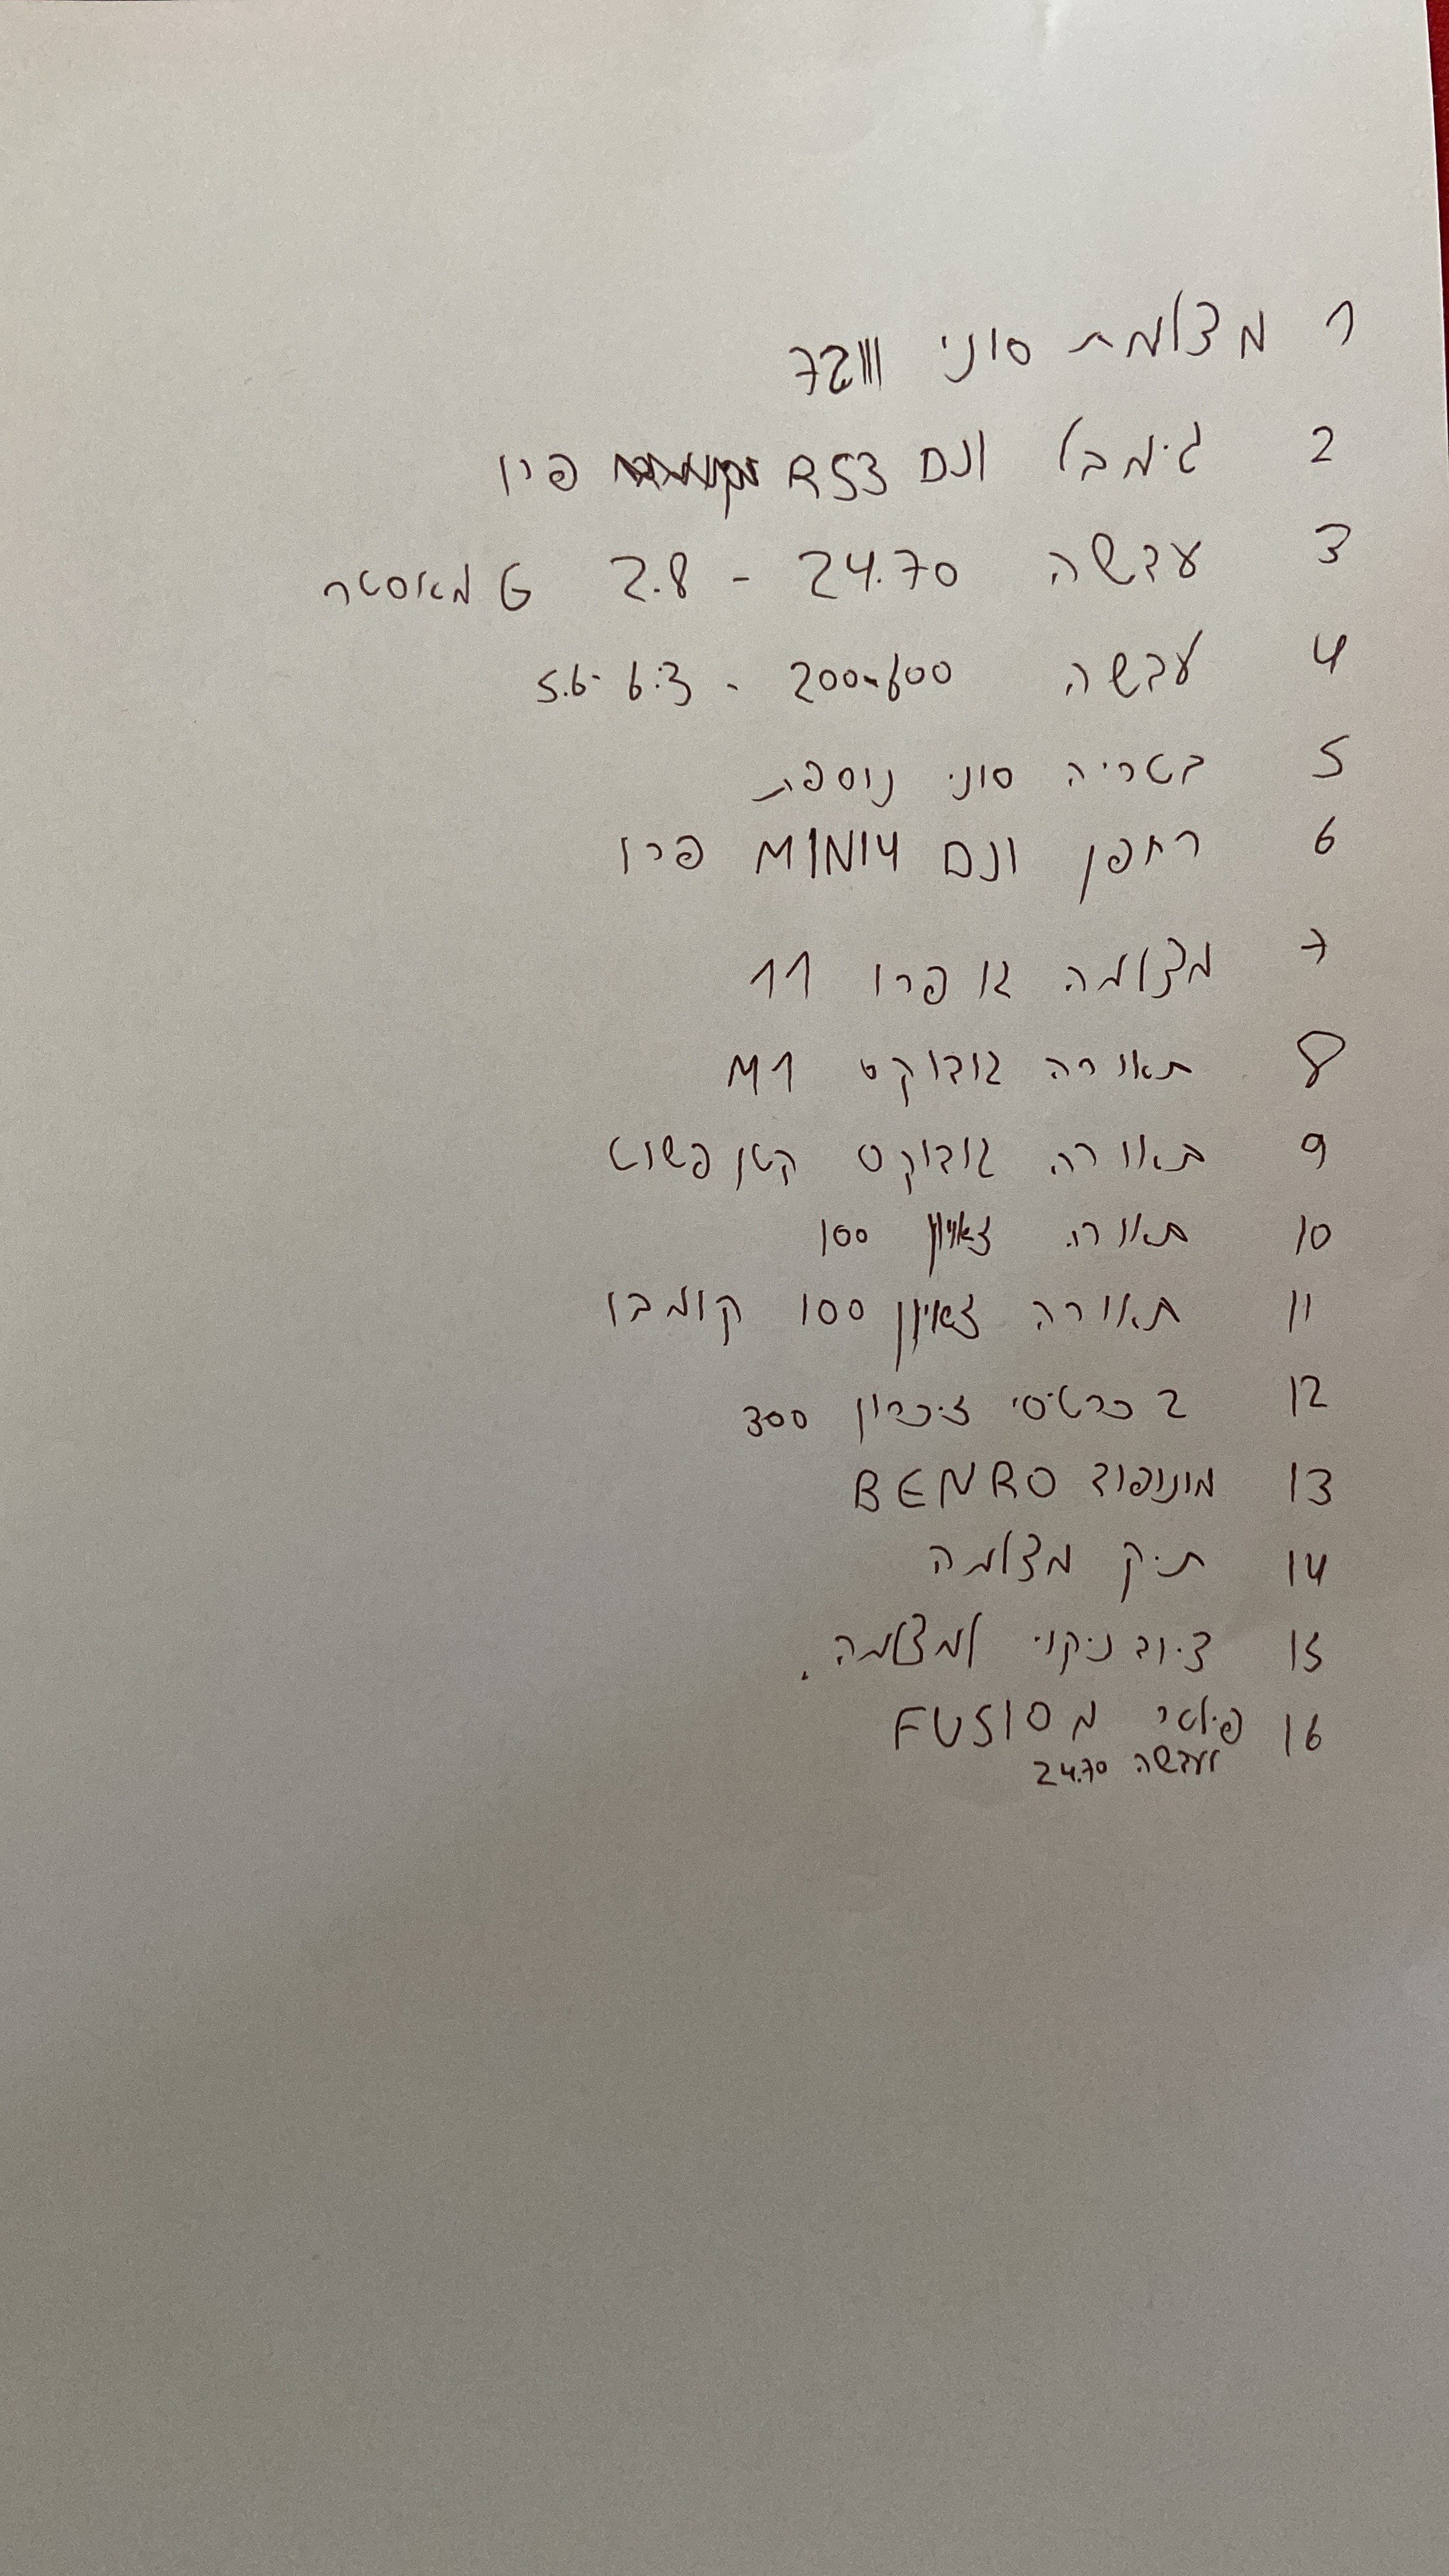 1 מצלמת סוני 7SIII
2 גימבל ונם RS3 פרו
3 עדשה 24.70 - 2.8 G מאסטר
4 עדשה 200-600 - 5.6-6.3
5 בטריה סוני נוספת
6 רחפן ונם MINI4 פרו
7 מצלמה גו פרו 11
8 תאורה גודוקס M1
9 תאורה גודוקס קטן פשוט
10 תאורה 100
11 תאורה 100 קומבו
12 2 כרטיסי זיכרון 300
13 מונופוד BENRO
14 תיק מצלמה
15 ציוד ניקוי למצלמה.
16 פילטר מ FUSIO
לעדשה 24.70